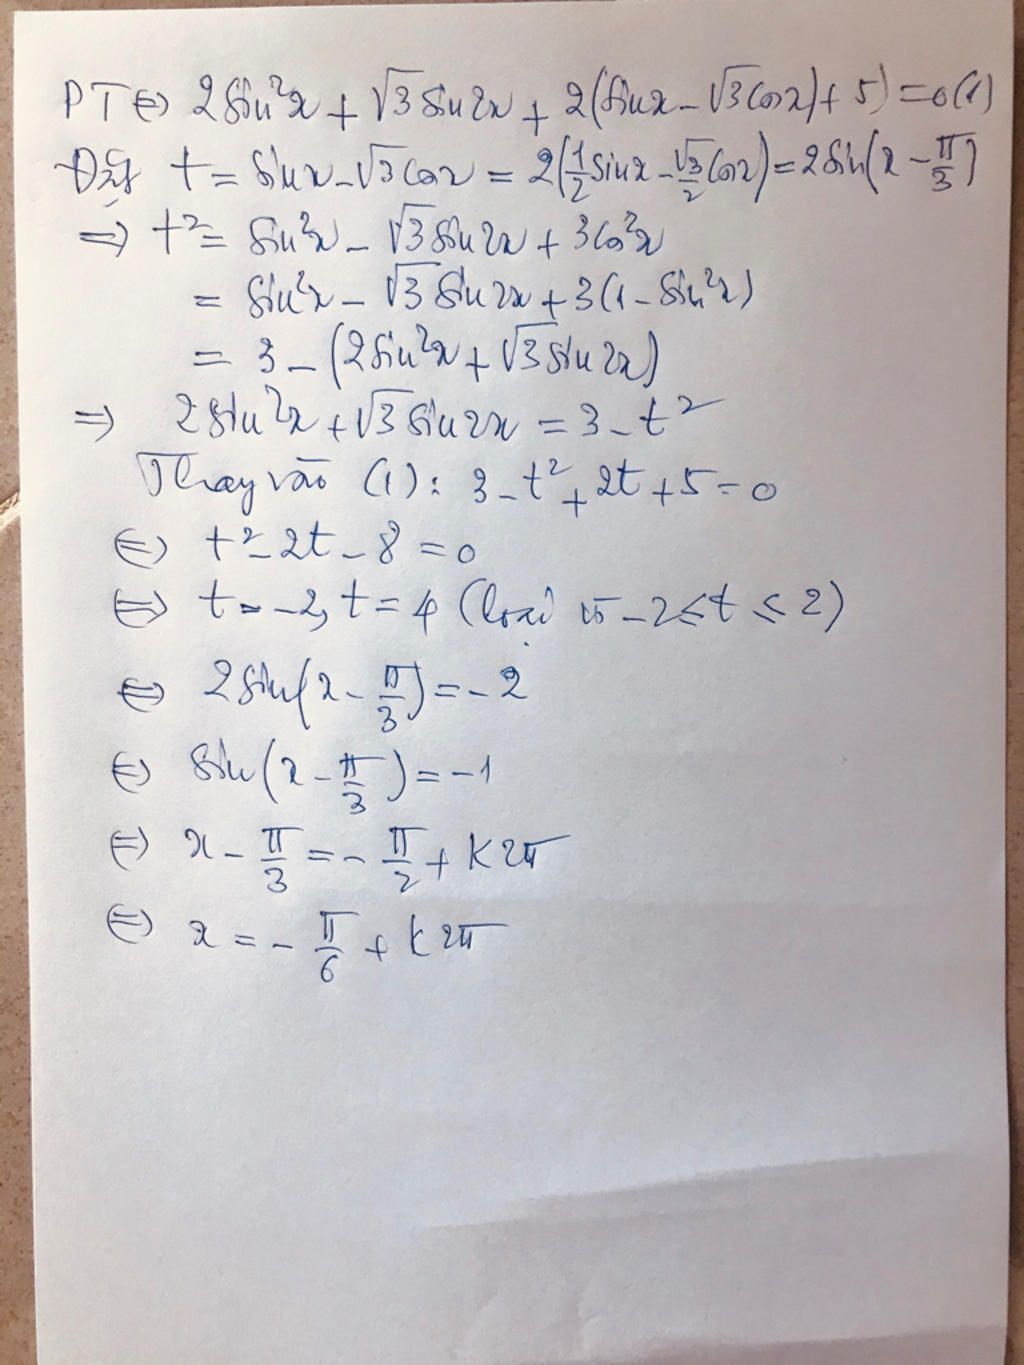 PT ⇔ 2sin²x + √3 sin2x + 2(sinx - √3 cosx) + 5) = 0 (1)
Đặt t = sinx - √3 cosx = 2(1/2 sinx - √3/2 cosx) = 2sin(x - π/3)
⇒ t² = sin²x - √3 sin2x + 3cos²x
= sin²x - √3 sin2x + 3(1 - sin²x)
= 3 - (2sin²x + √3 sin2x)
⇒ 2sin²x + √3 sin2x = 3 - t²
Thay vào (1): 3 - t² + 2t + 5 = 0
⇔ t² - 2t - 8 = 0
⇔ t = -2, t = 4 (loại vì -2 ≤ t ≤ 2)
⇔ 2sin(x - π/3) = -2
⇔ sin(x - π/3) = -1
⇔ x - π/3 = - π/2 + k2π
⇔ x = - π/6 + k2π